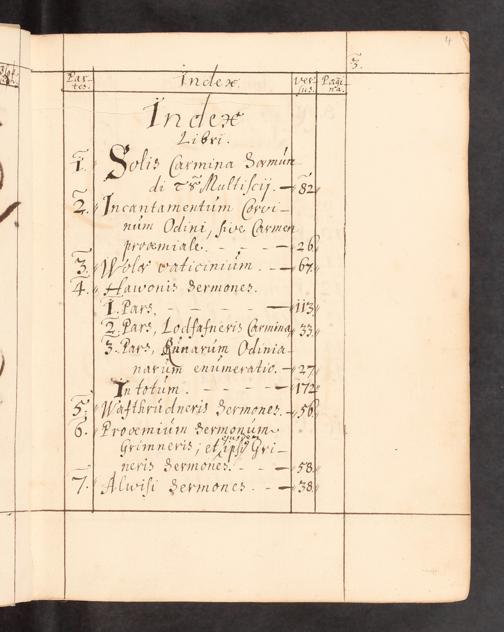 4
3.
Par- Index Ver- Pagi-
tes. sus. na.
Index
Libri.
1. Solis Carmina Sæmun-
di Multiscij. — 82
2. Incantamentum Corvi-
num Odini, sive Carmen
proœmiale. - - - — 26
3. Wolæ vaticinium. - — 67
4. Hawonis Sermones.
1. Pars. - - - - — 113
2. Pars, Lodfafneris Carmina 33.
3. Pars, Runarum Odinia-
narum enumeratio. — 27
In totum. - - - — 172
5. Wafthrudneris Sermones. — 56
6. Proœmium Sermonum
Grimneris; et ipsi Gri-
neris Sermones. - - — 58
7. Alwisi Sermones. - - — 38